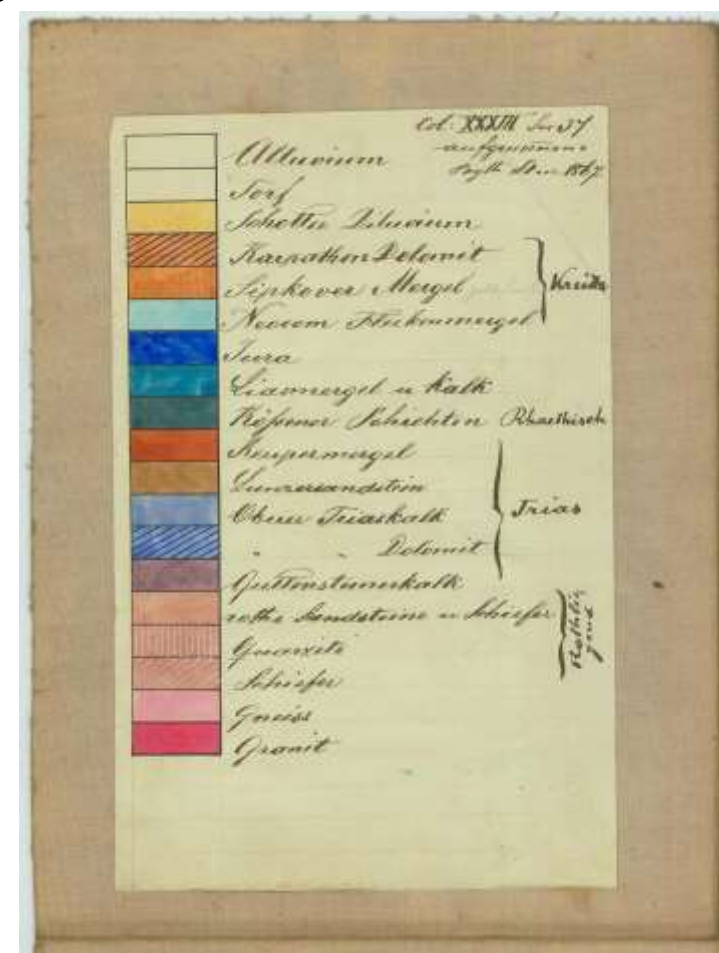 Col. XXXIII Sec 37
aufgenommen
1867
Alluvium
Torf
Schotter Diluvium
Karpathen Dolomit
Sipkover Mergel
Kreide
Neocom Fleckenmergel
Jura
Liasmergel u Kalk
Kößener Schichten Rhaethisch
Keupermergel
Lunzersandstein
Oberer Triaskalk
Trias
" " Dolomit
Guttensteinerkalk
rothe Sandsteine u Schiefer
Rothlie
gend
Quarzite
Schiefer
Gneiss
Granit